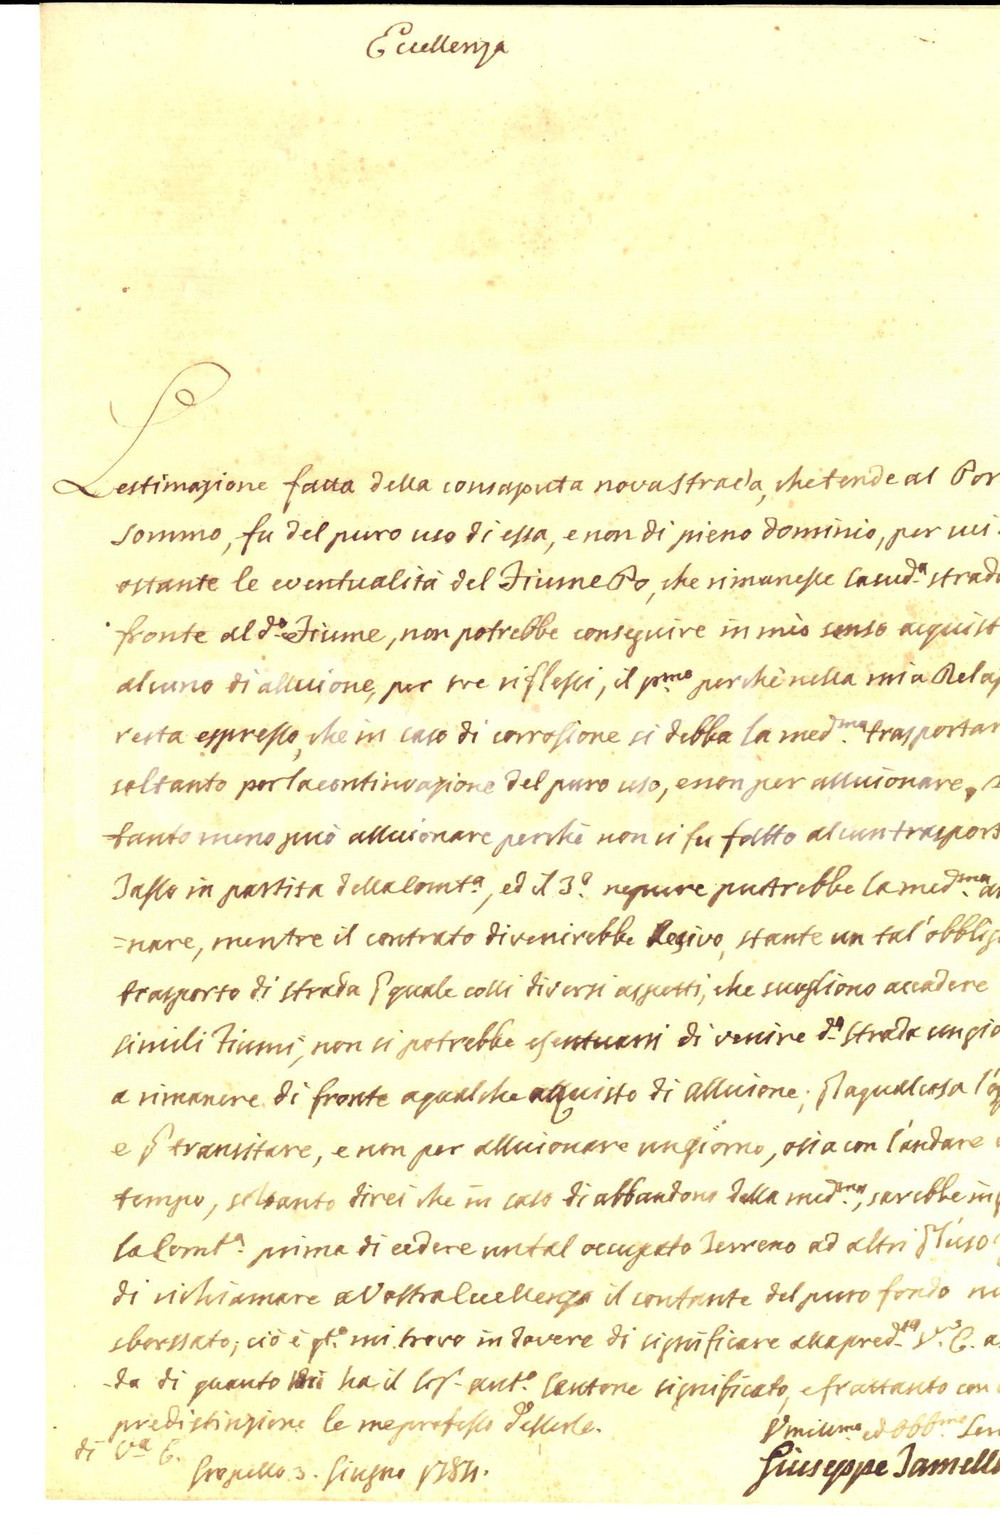 Eccellenza
L'estimazione fatta della consaputa nova strada, che tende al Por
sommo, fu del puro uso di essa, e non di pieno dominio, per cui
ostante le eventualità del Fiume Po, che rimanesse la sud.a strada
fronte al d.o Fiume, non potrebbe conseguire in mio senso acquist
alcuno di alluvione, per tre riflessi, il p.mo perchè nella mia Relaz
resta espresso, che in caso di corrosione si debba la med.ma trasportar
soltanto per la continuazione del puro uso, e non per alluvionare,
tanto meno può alluvionare perchè non si fu fatto alcun trasport
in partita della Com.tà, ed il 3.o nepure puotrebbe la med.ma
=nare, mentre il contrato divenirebbe lesivo, stante un tal'obblig
trasporto di strada quale colli diversi aspetti, che sogliono accadere
simili Fiumi, non si potrebbe esentuarsi di venire d.a strada un gio
a rimanere di fronte a qualche acquisto di alluvione; la qual cosa
e transitare, e non per alluvionare un giorno, o sia con l'andare
tempo, soltanto direi che in caso di abbandono della med.ma, sarebbe in
la Com.tà prima di cedere un tal occupato Terreno ad altri l'uso
di richiamare a Vostra Eccellenza il contante del puro fondo
sborssato; ciò è q.to mi trovo in dovere di significare alla pred.ta V.a E.
-da di quanto ha il Sig.r Ant.o Cantone significato, e frattanto con
predistinzione me professo d'essere.
di V.a E.
Gropello 3. Giugno 1784.
Umiliss.mo ed Obb.mo Ser
Giuseppe Jamell